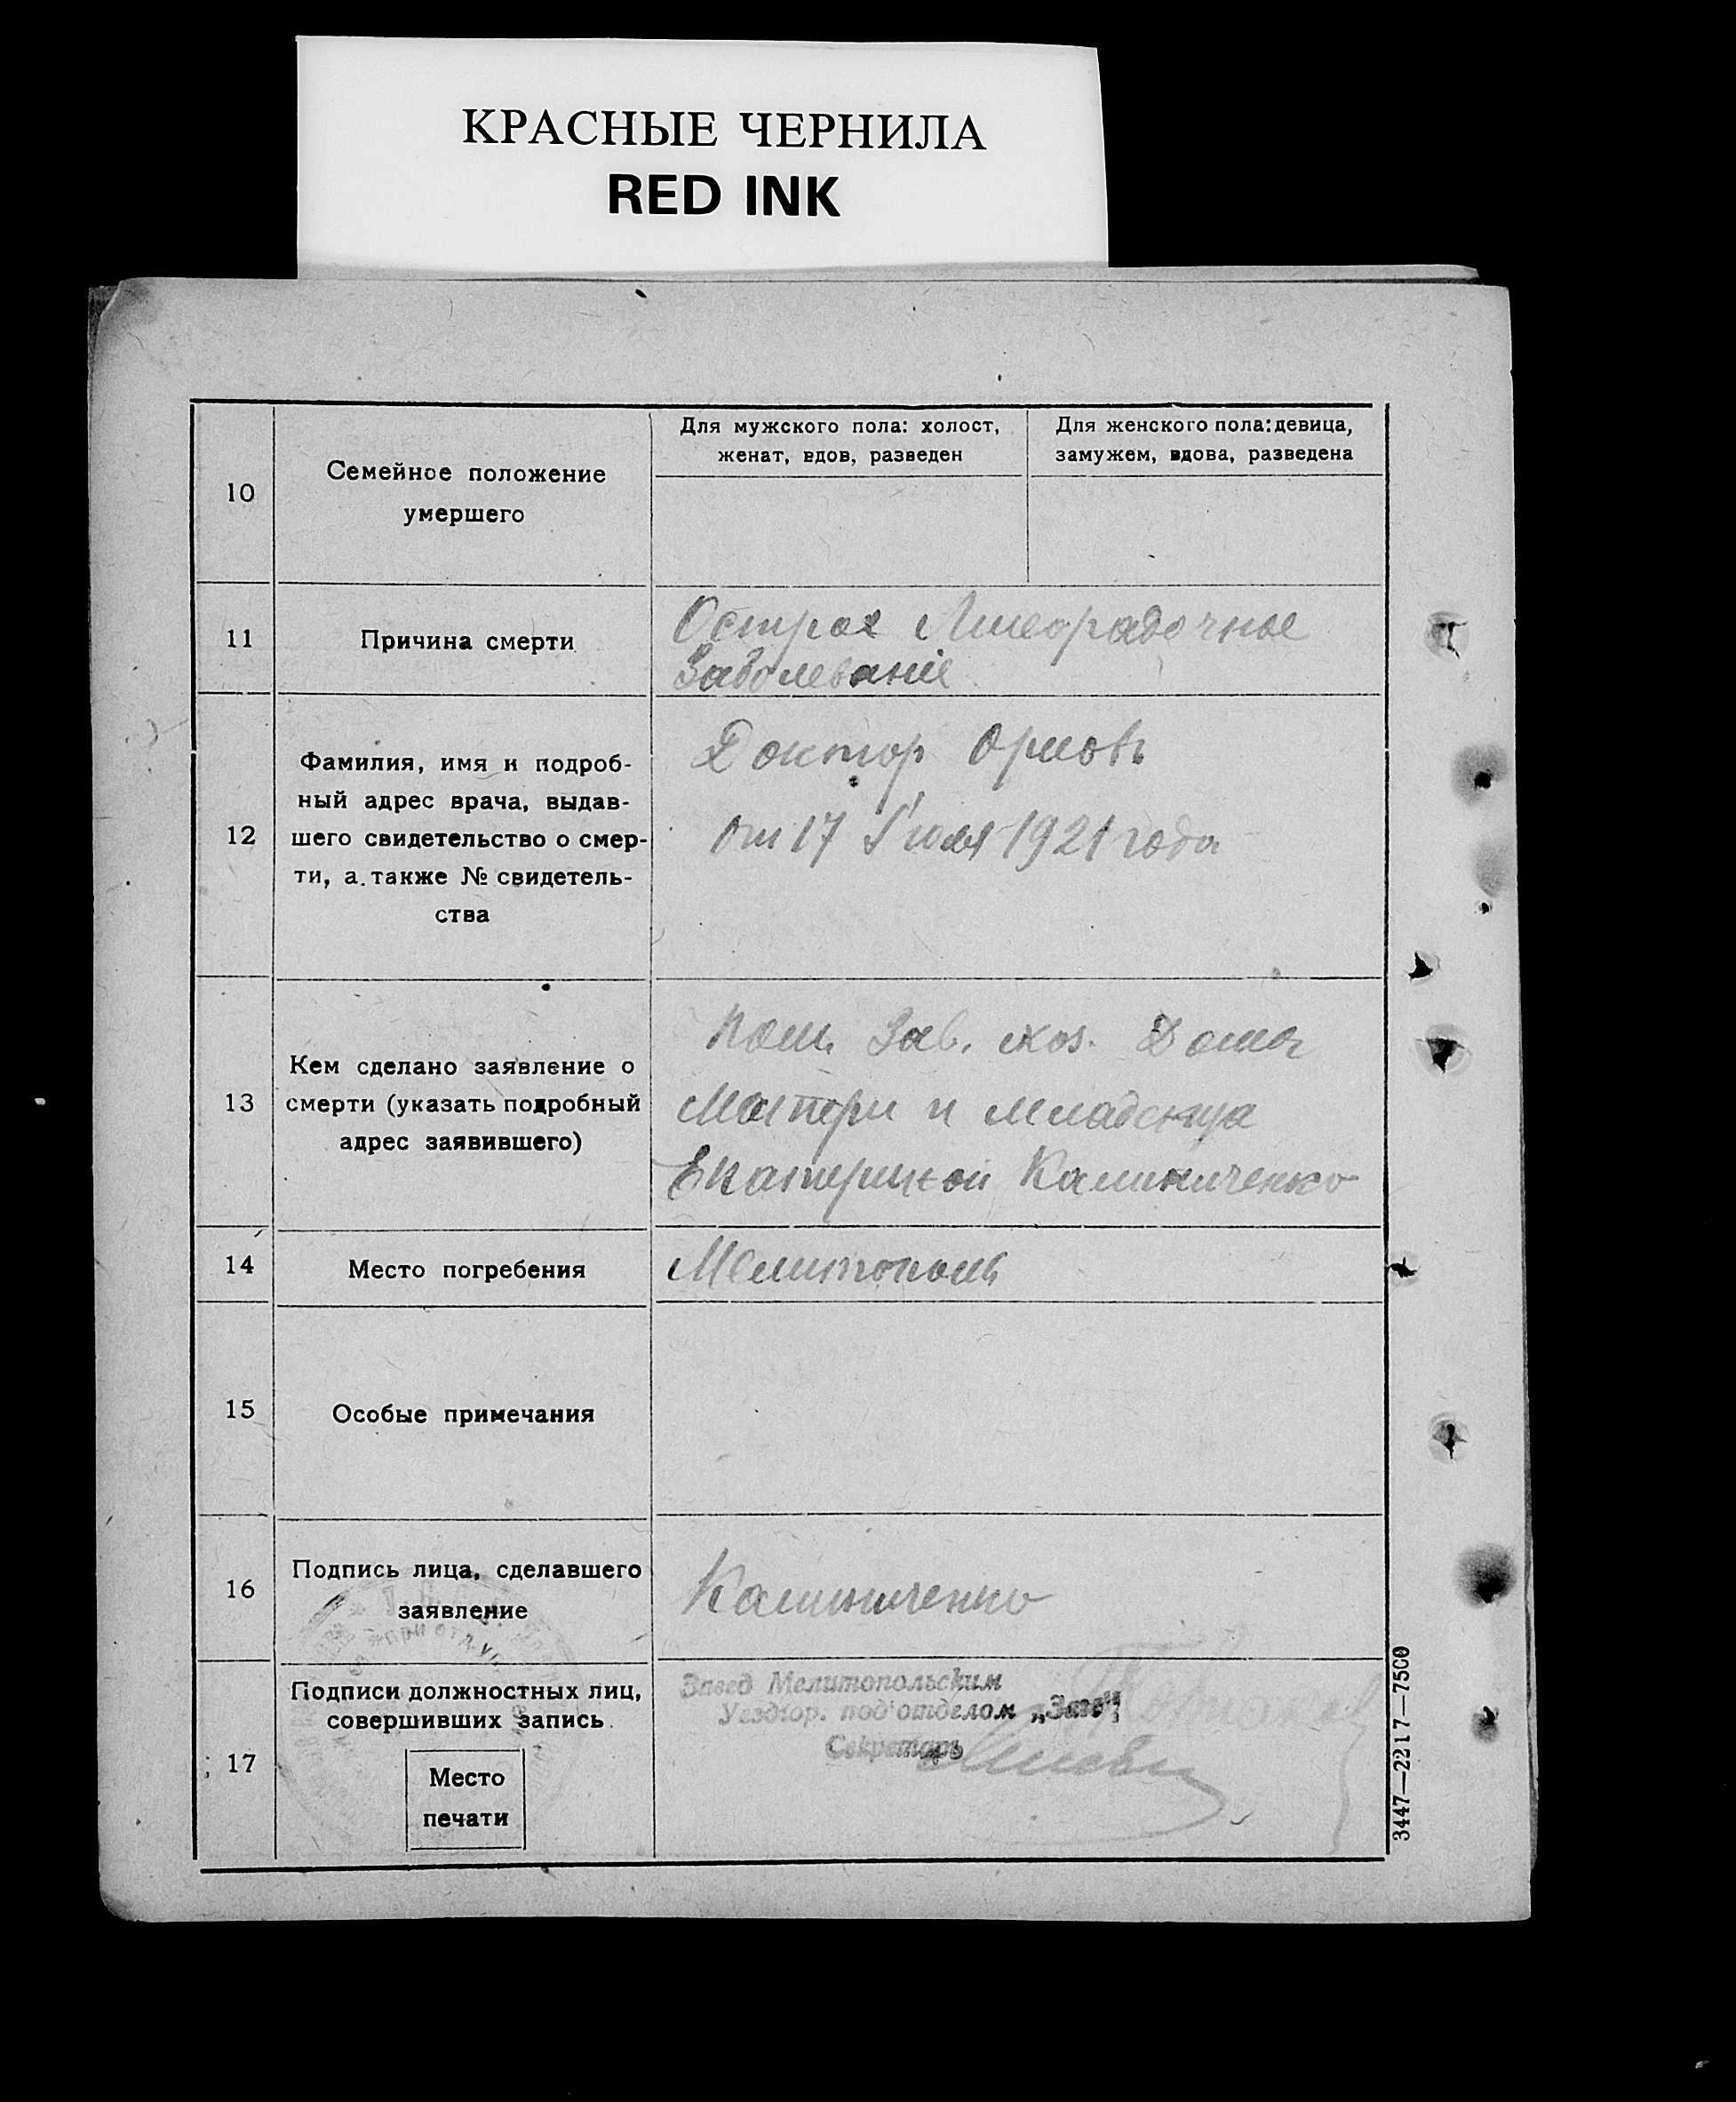 КРАСНЫЕ ЧЕРНИЛА
RED INK
10
Семейное положение
умершего
Для мужского пола: холост,
женат, вдов, разведен
Для женского пола: девица,
замужем, вдова, разведена
11
Причина смерти
Острое Лихорадочное
Заболеваніе
12
Фамилия, имя и подроб-
ный адрес врача, выдав-
шего свидетельство о смер-
ти, а также № свидетель-
ства
Доктор Орловъ
от 17 Іюля 1921 года
13
Кем сделано заявление о
смерти (указать подробный
адрес заявившего)
Пом. Зав. хоз. Дома
Матери и младенца
Екатериной Калиниченко
14
Место погребения
Мелитополь
15
Особые примечания
16
Подпись лица, сделавшего
заявление
Калиниченко
17
Подписи должностных лиц,
совершивших запись
Место
печати
Завед Мелитопольским
Уездгор. под'отделом „Загс"
Секретарь
3447—2217—7500